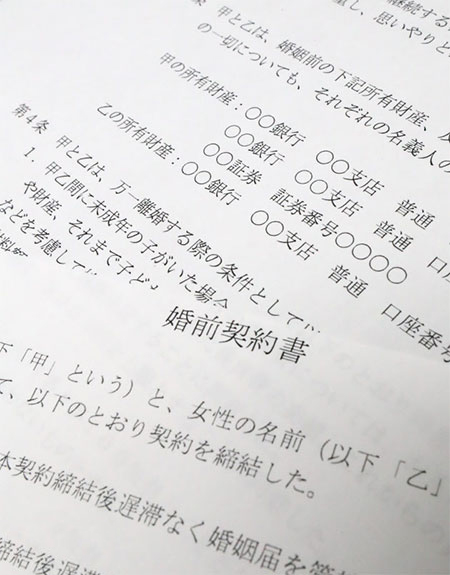 継続する
重し、思いやりと
甲と乙は、婚姻前の下記所有財産、
の一切についても、それぞれの名義人の
甲の所有財産：〇〇銀行 〇〇支店 普通 口座
〇〇銀行 〇〇支店 普通 口座番号
〇〇証券 証券番号〇〇〇〇
乙の所有財産：〇〇銀行 〇〇支店 普通 口座番号
第4条 甲と乙は、万一離婚する際の条件として
1. 甲乙間に未成年の子がいた場合
や財産、それまで子ど
などを考慮して
婚前契約書
下「甲」という）と、女性の名前（以下「乙」
て、以下のとおり契約を締結した。
本契約締結後遅滞なく婚姻届を
締結後遅滞